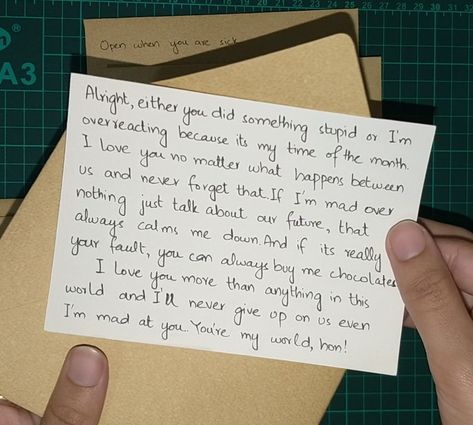 A3
Open when you are sick
Alright, either you did something stupid or I'm
overreacting because its my time of the month.
I love you no matter what happens between
us and never forget that. If I'm mad over
nothing just talk about our future, that
always calms me down. And if its really
your fault, you can always buy me chocolates
I love you more than anything in this
world and I'll never give up on us even
I'm mad at you.. You're my world, hon!